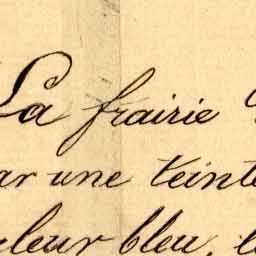 La frairie
ar une teinte
leur bleu, l